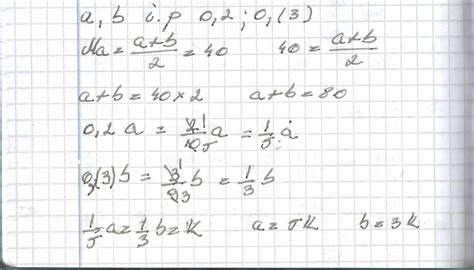 a, b i.p 0,2 ; 0,(3)
Ma = a+b/2 = 40 40 = a+b/2
a+b = 40×2 a+b = 80
0,2 a = 2/10 a = 1/5 a
0,(3) b = 3/9 b = 1/3 b
1/5 a = 1/3 b = K a = 5K b = 3K